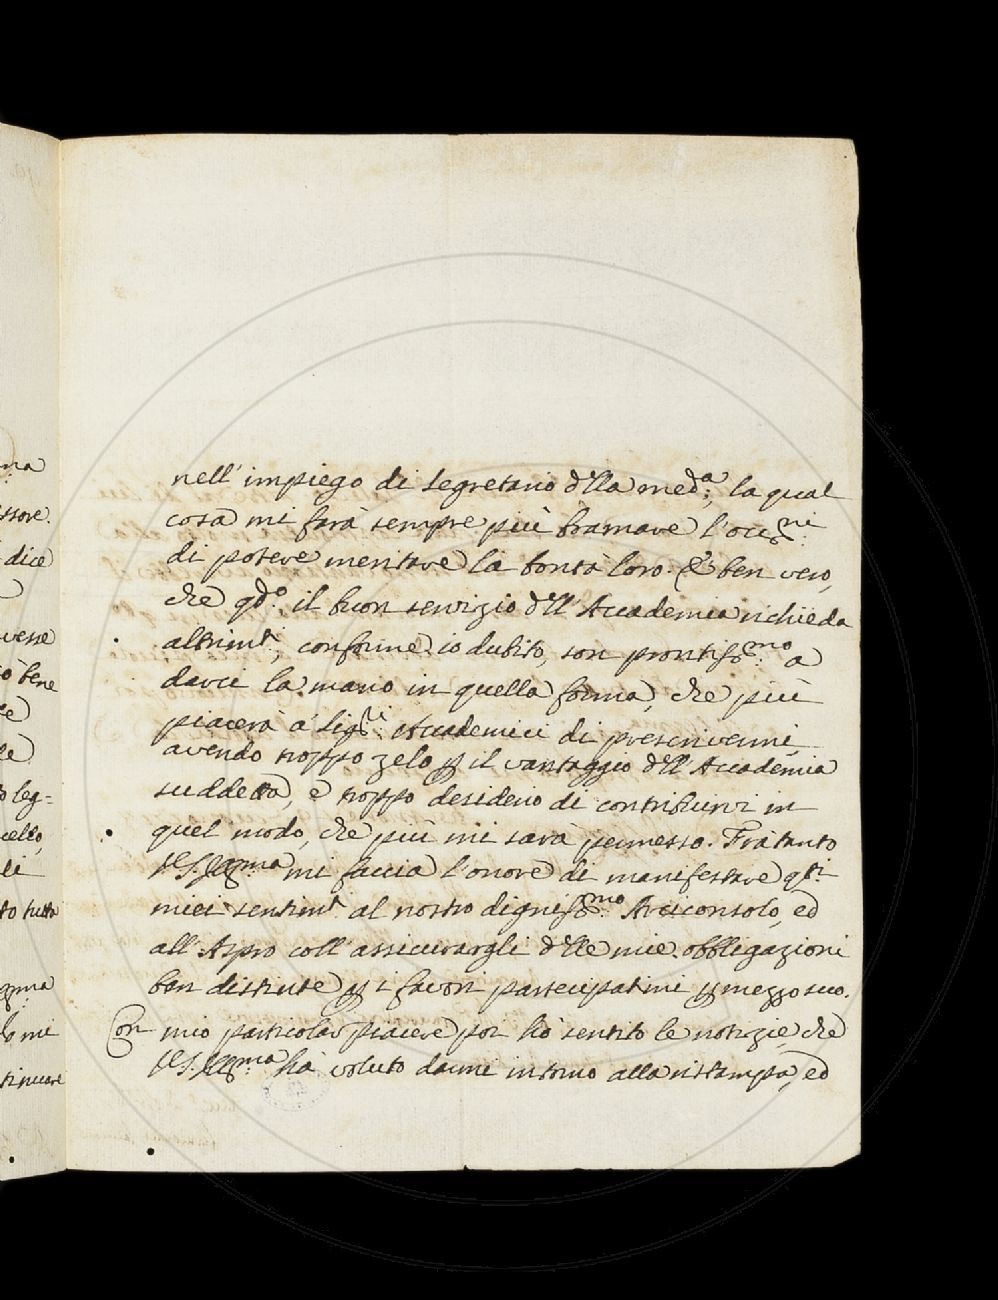 nell' impiego di Segretario d'lla med.a; la qual
cosa mi farà sempre più bramare l'occ.ni
di potere meritare la bontà loro. È ben vero,
che qdo. il buon servizio d'll' Accademia richieda
altrimti, conforme io dubito, son prontiss.mo a
darci la mano in quella forma, che più
piacerà a' Sigri. Accademici di prescrivermi,
avendo troppo zelo p il vantaggio d'll' Accademia
suddetta, e troppo desiderio di contribuirvi in
quel modo, che più mi sarà permesso. Frà tanto
VS. Ill.ma mi faccia l'onore di manifestare qti.
miei sentimti al nostro digniss.mo Arciconsolo, ed
all' Aspro coll' assicurargli d'lle mie obbligazioni
ben distinte p i favori partecipatimi p mezzo suo.
Con mio particolar piacere poi hò sentito le notizie, che
VS. Ill.ma hà voluto darmi intorno alla ristampa, ed
na
ssore.
dice
bene
leg=
cello,
li
to tutta
ma
mi
tinuare